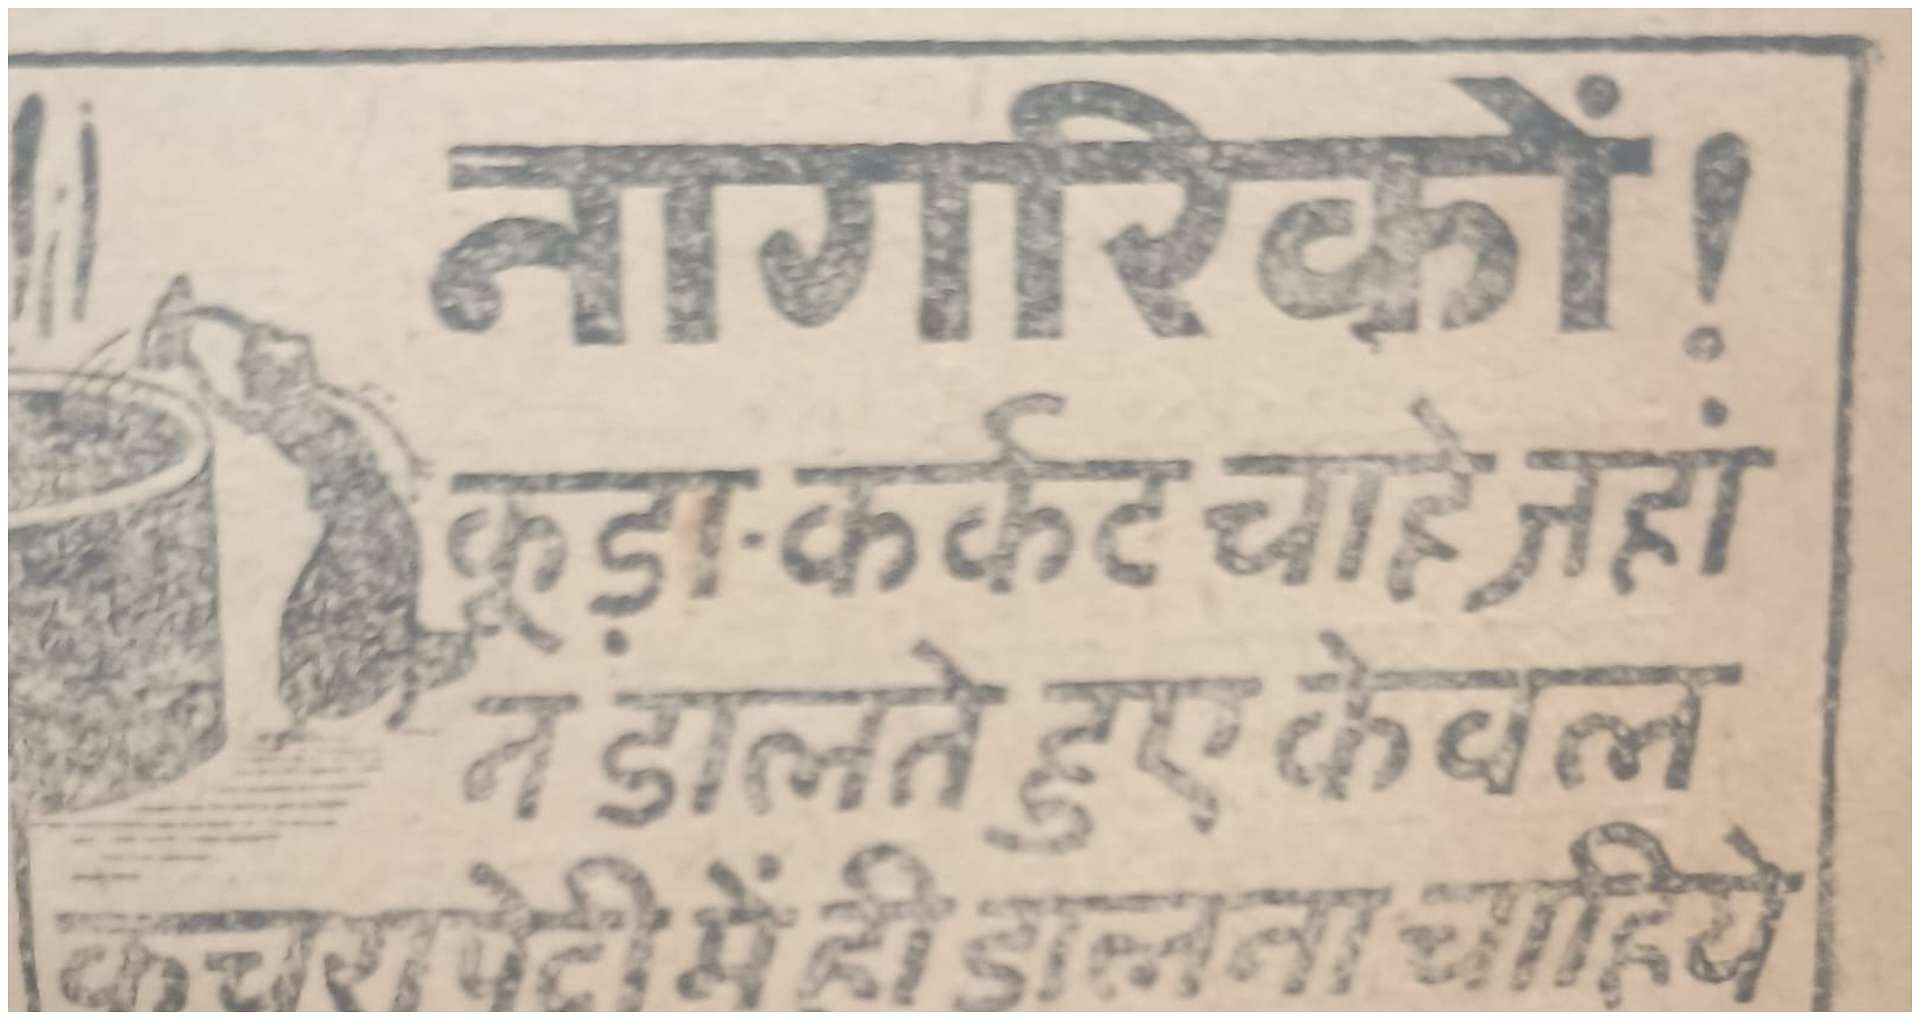 नागरिकों!
कूड़ा-कर्कट चाहे जहां
न डालते हुए केवल
कचरा पेटी में ही डालना चाहिये